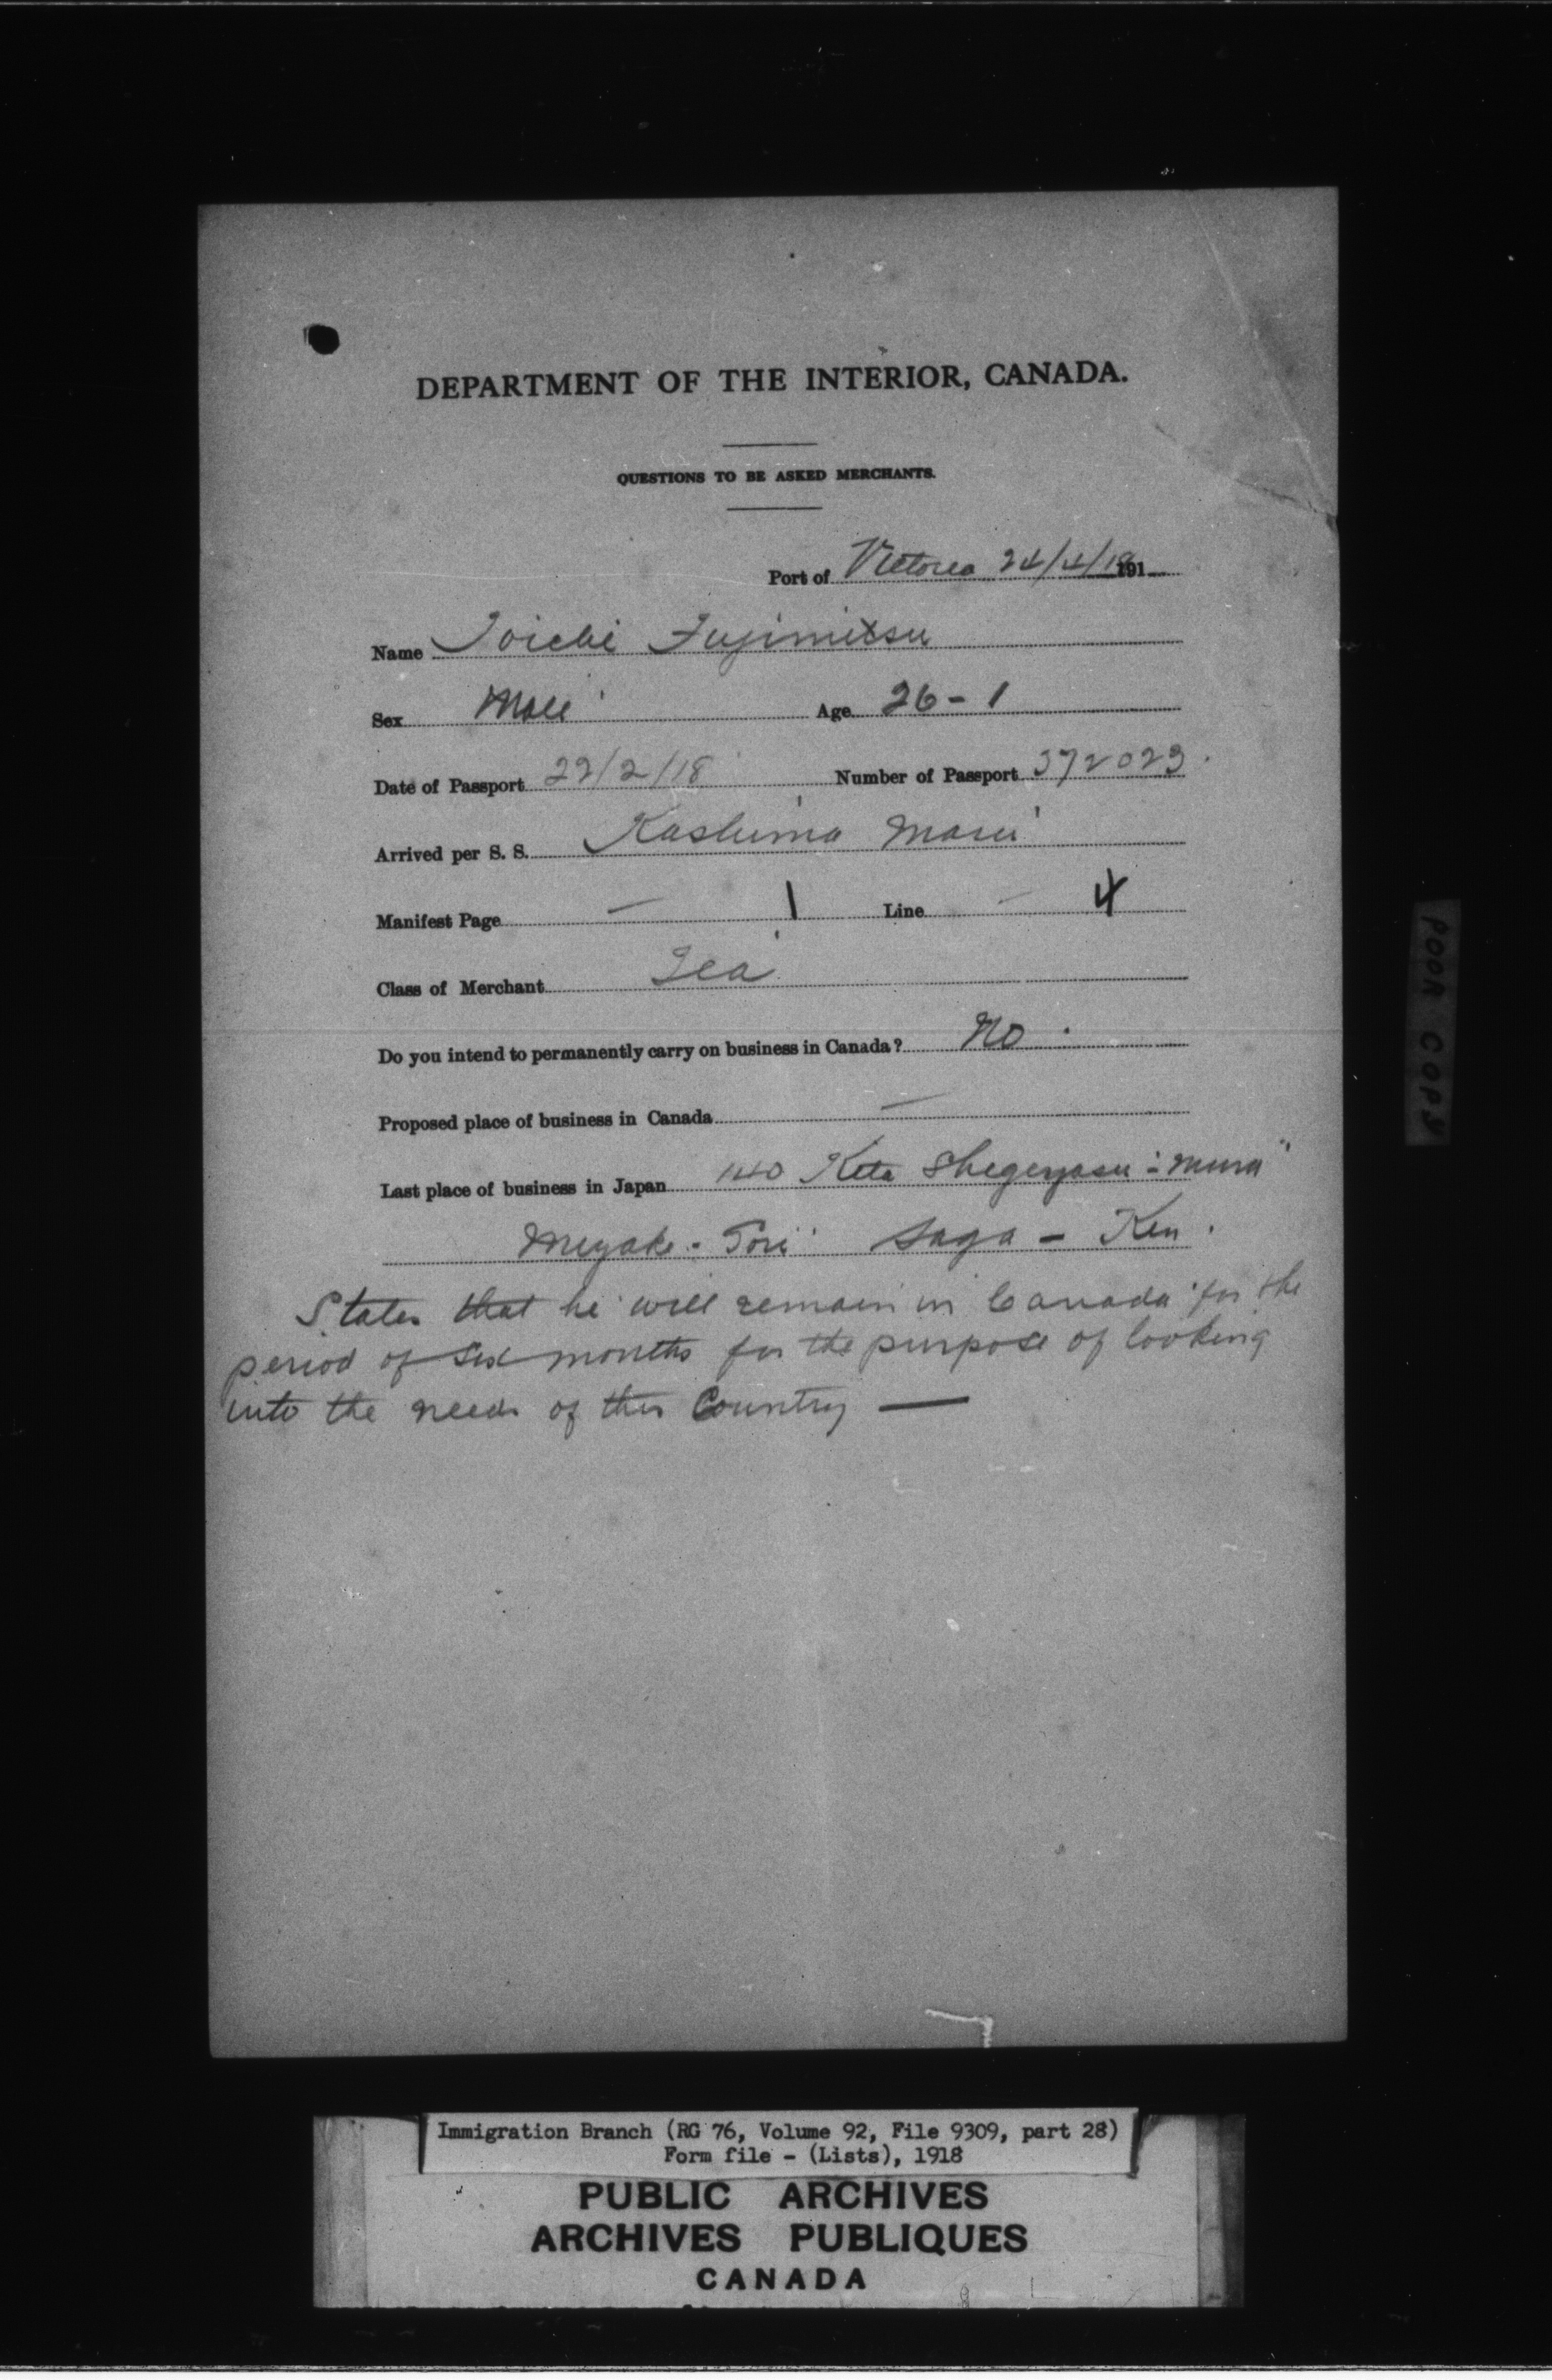 DEPARTMENT OF THE INTERIOR, CANADA.
QUESTIONS TO BE ASKED MERCHANTS.
Port of Victoria 24/4/18 191
Name Toichi Fujimitsu
Sex Male Age 26 - 1
Date of Passport 22/2/18 Number of Passport 372023
Arrived per S. S. Kashima Maru
Manifest Page — 1 Line — 4
Class of Merchant Tea
Do you intend to permanently carry on business in Canada? No.
Proposed place of business in Canada —
Last place of business in Japan 140 Kita Shigeyasu - Mura
Miyake - Saga - Ken.
States that he will remain in Canada for the
period of six months for the purpose of looking
into the needs of this Country —
POOR COPY
Immigration Branch (RG 76, Volume 92, File 9309, part 28)
Form file - (Lists), 1918
PUBLIC ARCHIVES
ARCHIVES PUBLIQUES
CANADA